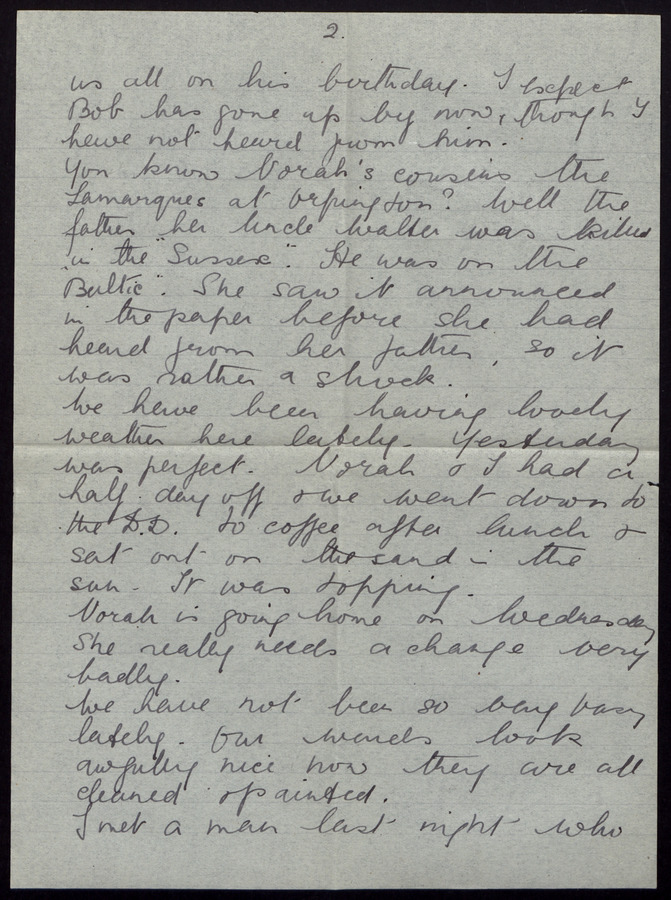 2.
us all on his birthday. I expect
Bob has gone up by now, though I
have not heard from him.
You know Norah's cousins the
Lamarques at Orpington? Well the
father her Uncle Walter was killed
in the "Sussex". He was on the
Baltic". She saw it announced
in the paper before she had
heard from her father, so it
was rather a shock.
We have been having lovely
weather here lately. Yesterday
was perfect. Norah & I had a
half day off & we went down to
the D.D. to coffee after lunch &
sat out on the sand in the
sun. It was topping.
Norah is going home on Wednesday
She really needs a change very
badly.
We have not been so very busy
lately. Our wards look
awfully nice now they are all
cleaned & painted.
I met a man last night who